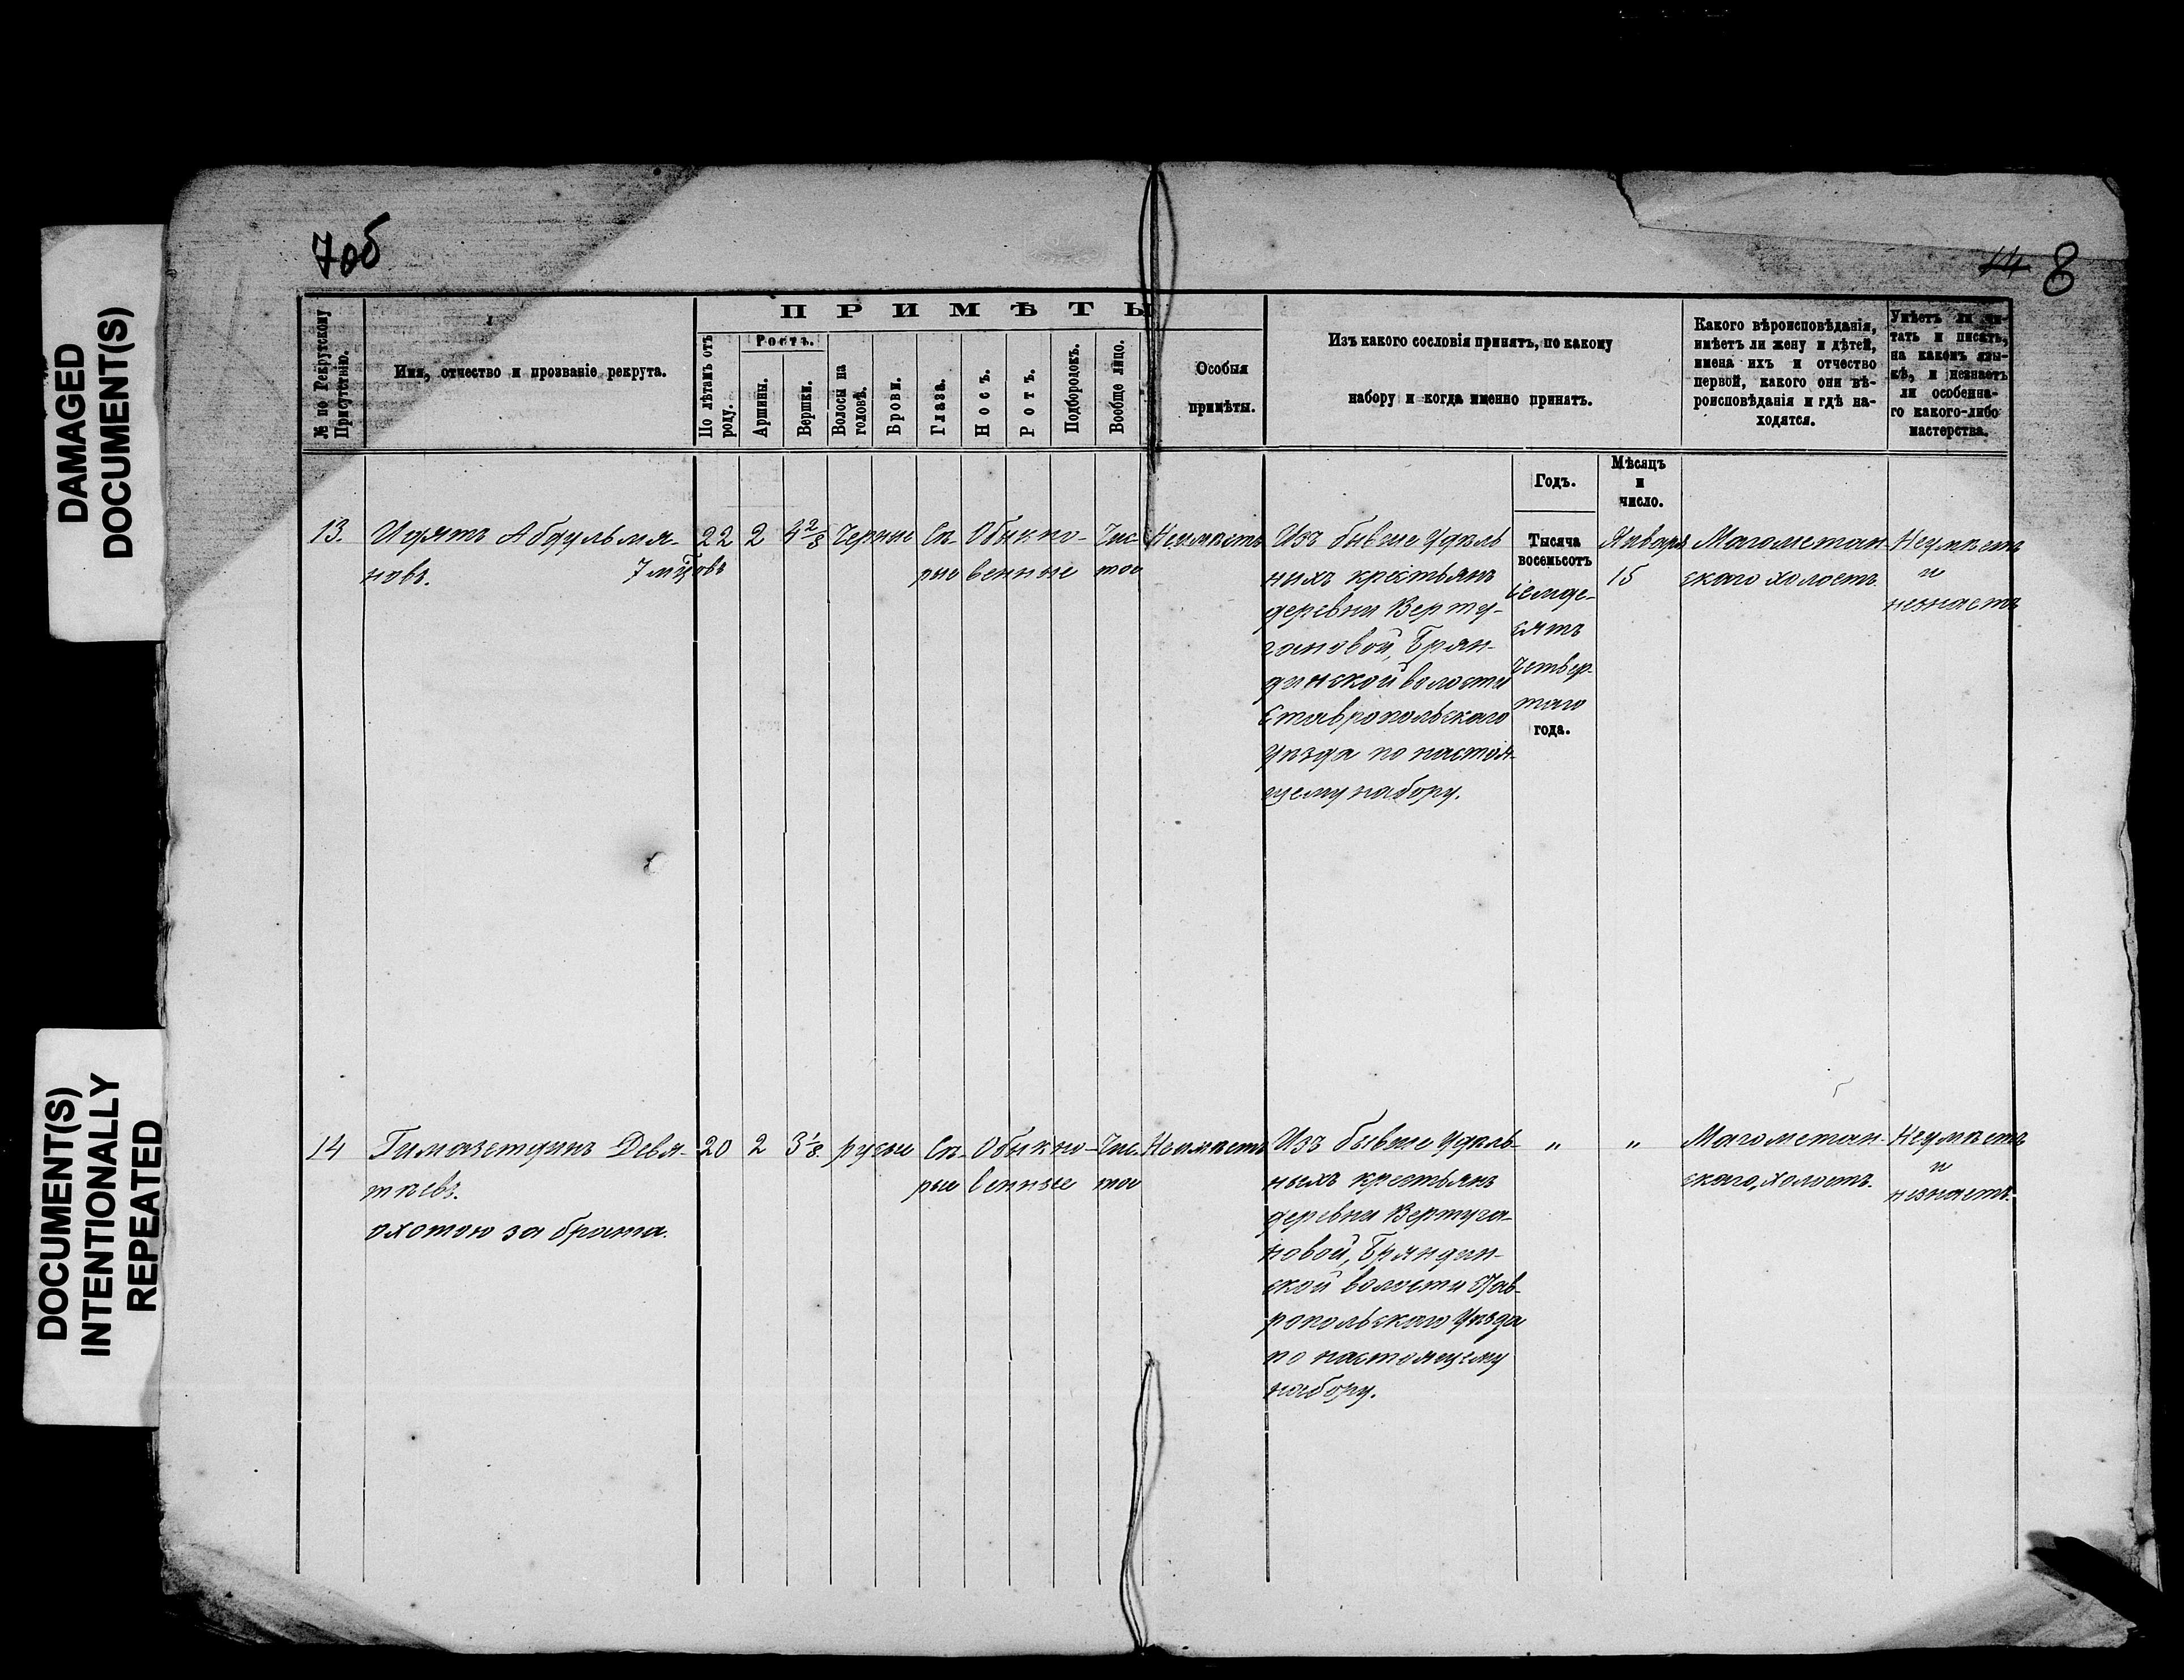 DAMAGED
DOCUMENT(S)
DOCUMENT(S)
INTENTIONALLY
REPEATED
7об
14 8
№ по Рекрутскому
Присутствію.
Имя, отчество и прозваніе рекрута.
ПРИМѢТЫ
По лѣтамъ отъ
роду.
Ростъ.
Аршины.
Вершки.
Волосы на
головѣ.
Брови.
Глаза.
Носъ.
Ротъ.
Подбородокъ.
Вообще лицо.
Особыя
примѣты.
Изъ какого сословія принятъ, по какому
набору и когда именно принятъ.
Какого вѣроисповѣданія,
имѣетъ ли жену и дѣтей,
имена ихъ и отчество
первой, какого они вѣ-
роисповѣданія и гдѣ на-
ходятся.
Умѣетъ ли чи-
тать и писать,
на какомъ язы-
кѣ, и незнаетъ
ли особенна-
го какого-либо
мастерства.
Годъ.
Мѣсяцъ
и
число.
13.
Абдульмя-
новъ.
22
7 мцовъ
2
4 2/8
Черные
Сѣ-
рые
Обыкно-
венные
Чис-
тое
Неимѣетъ
Изъ бывше Удѣль
ныхъ крестьянъ
деревни Верту-
гановой, Брян-
динской волости
Ставропольскаго
Уѣзда по настоя-
щему набору.
Тысяча
восемьсотъ
семде-
сятъ
Четвер-
таго
года.
Января
15
Магометан-
скаго холостъ.
Неумѣетъ
и
незнаетъ
14
Гимазетдинъ Девя-
тѣевъ.
охотою за брата.
20
2
3 1/8
русые
Сѣ-
рые
Обыкно-
венные
Чис-
тое
Неимѣетъ
Изъ бывше Удѣль-
ныхъ крестьянъ
деревни Вертуга-
новой, Бряндин-
ской волости Став-
ропольскаго Уѣзда
по настоящему
набору.
"
"
Магометан-
скаго, холостъ.
Неумѣетъ
и
незнаетъ.